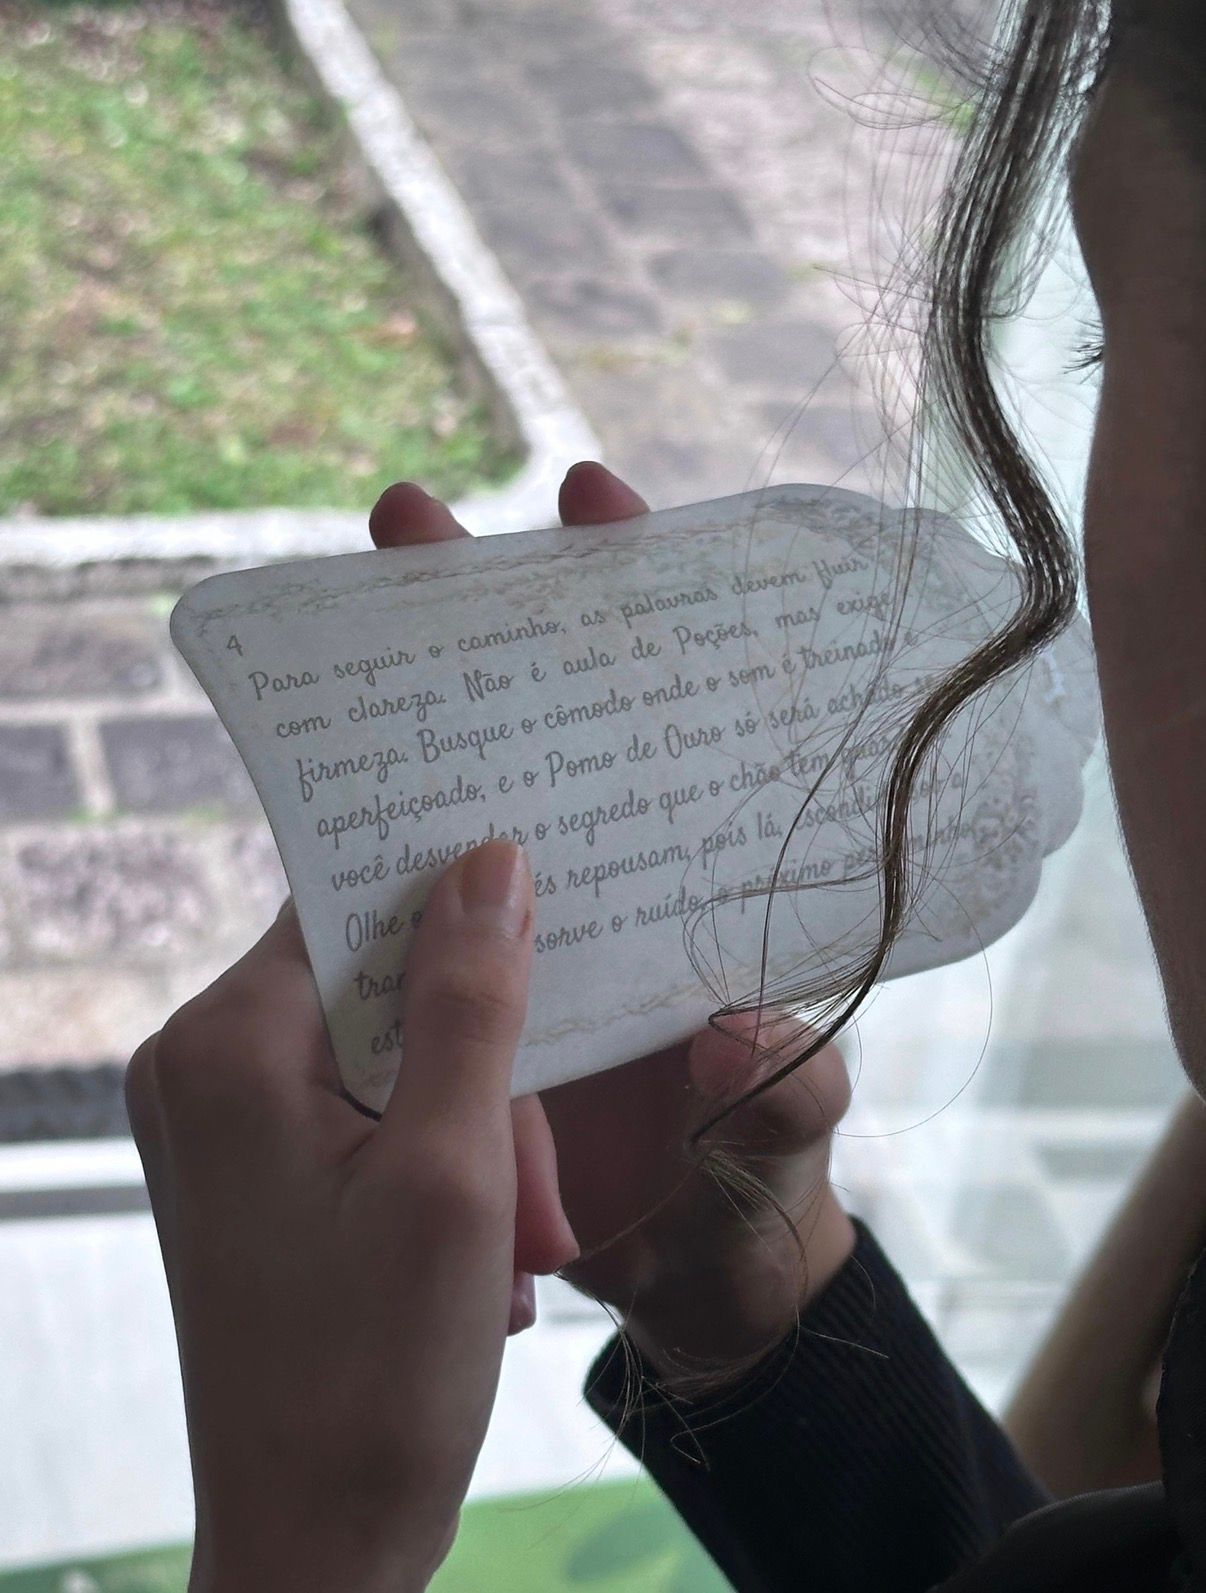 4
Para seguir o caminho, as palavras devem fluir
com clareza. Não é aula de Poções, mas exige
firmeza. Busque o cômodo onde o som é treinado e
aperfeiçoado, e o Pomo de Ouro só será achado se
você desvendar o segredo que o chão tem
Olhe repousam, pois lá,
o ruído, o próximo pergaminho